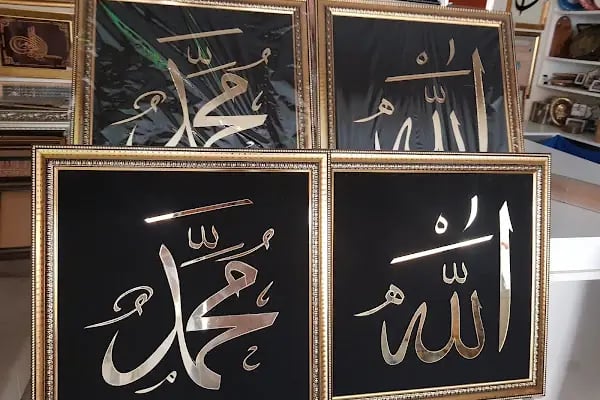 الله محمد
الله محمد